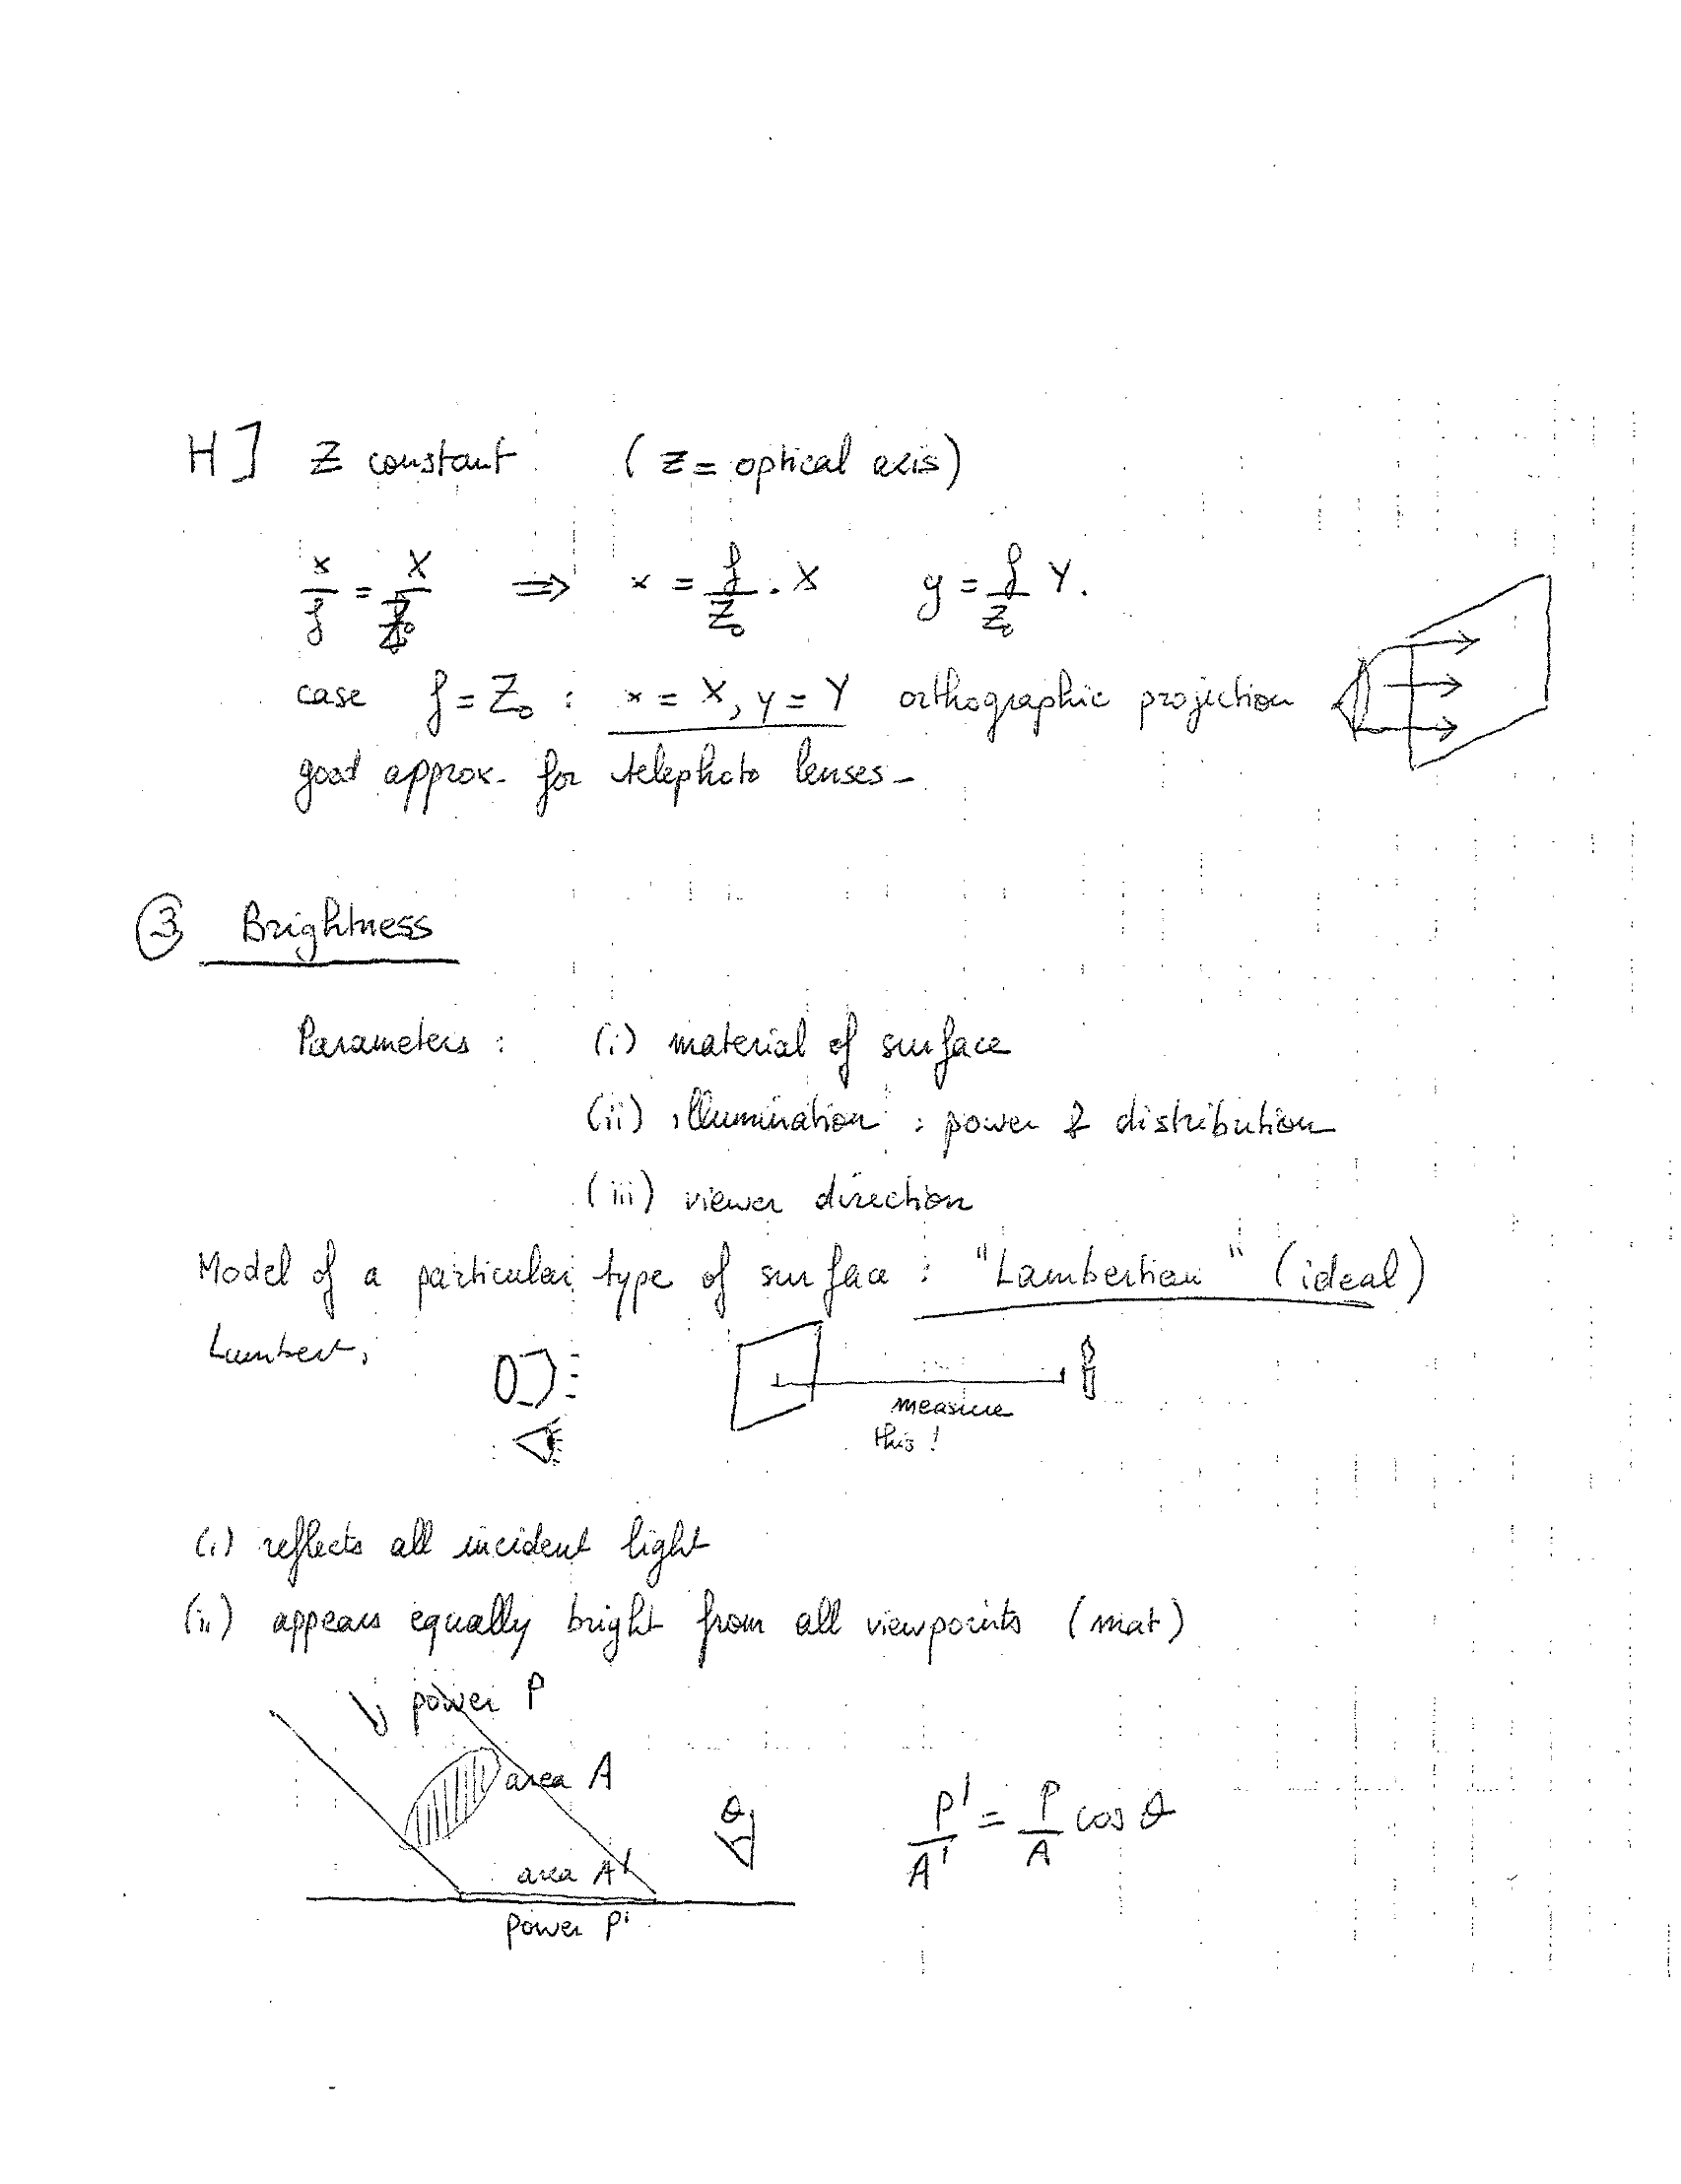 H] Z constant (Z = optical axis)
x/f = X/Z₀ ⇒ x = f/Z₀ . X y = f/Z₀ Y.
case f = Z₀ : x = X, y = Y orthographic projection
good approx. for telephoto lenses -
③ Brightness
Parameters : (i) material of surface
(ii) illumination : power & distribution
(iii) viewer direction
Model of a particular type of surface : "Lambertian" (ideal)
Lambert,
measure
this !
(i) reflects all incident light
(ii) appears equally bright from all viewpoints (mat)
power P
area A
θ
P'/A' = P/A cos θ
area A'
power P'